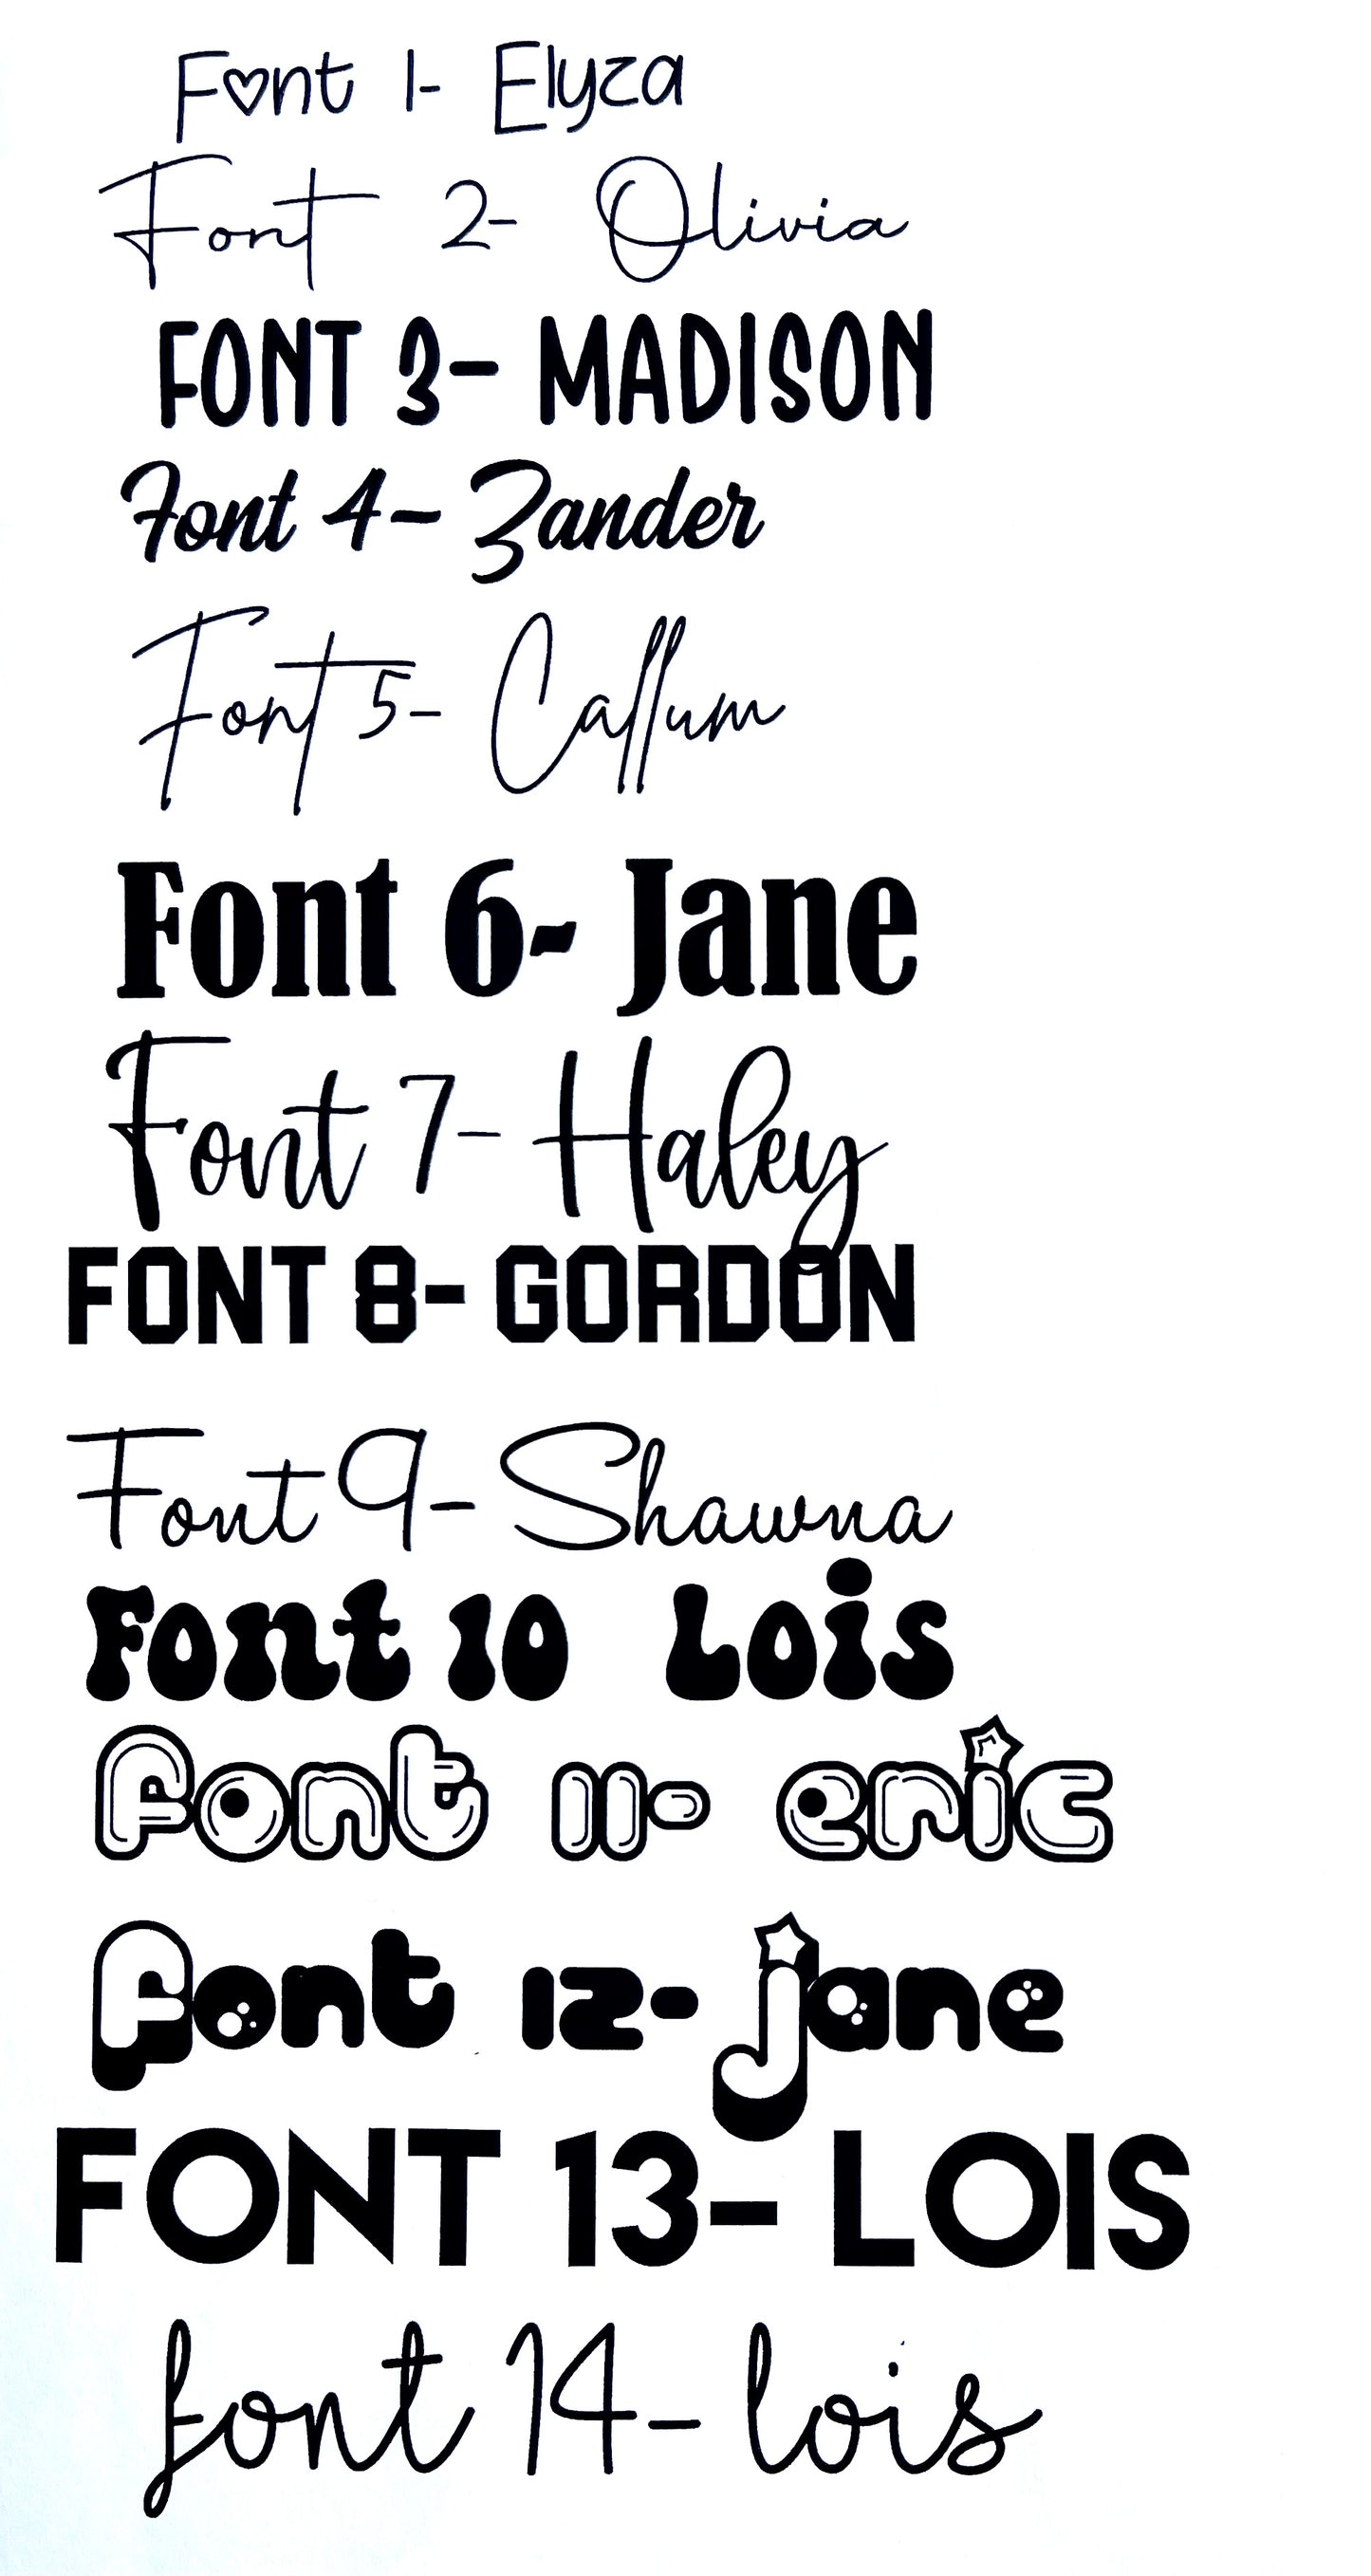 Font 1- Elyza
Font 2- Olivia
FONT 3- MADISON
Font 4- Zander
Font 5- Callum
Font 6- Jane
Font 7- Haley
FONT 8- GORDON
Font 9- Shawna
Font 10 Lois
font 11- eric
font 12- jane
FONT 13- LOIS
font 14- lois